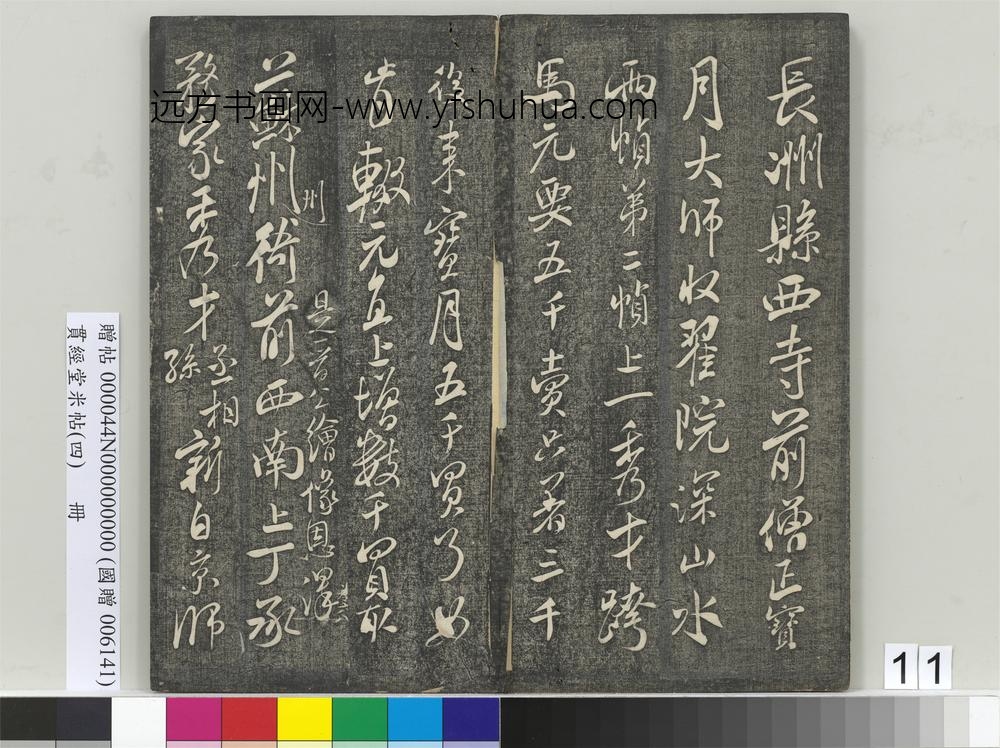 長洲縣西寺前僧正寶
月大師收翟院深山水
兩幀第二幀上一秀才跨
馬元要五千賣只著三千
後來寶月五千買了如
肯輟元直上增數千買取
蘇州
州
衙前西南上丁承
是
繪像恩澤
秀才
丞相
孫
新自京師
远方书画网-www.yfshuhua.com
贈帖 000044N000000000 (國贈 006141)
貫經堂米帖(四) 冊
11